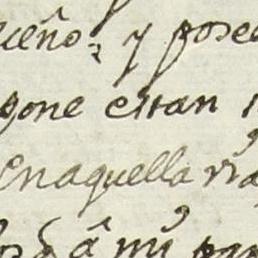 ueño; y posee
pone estan
enaquella via
â mi par